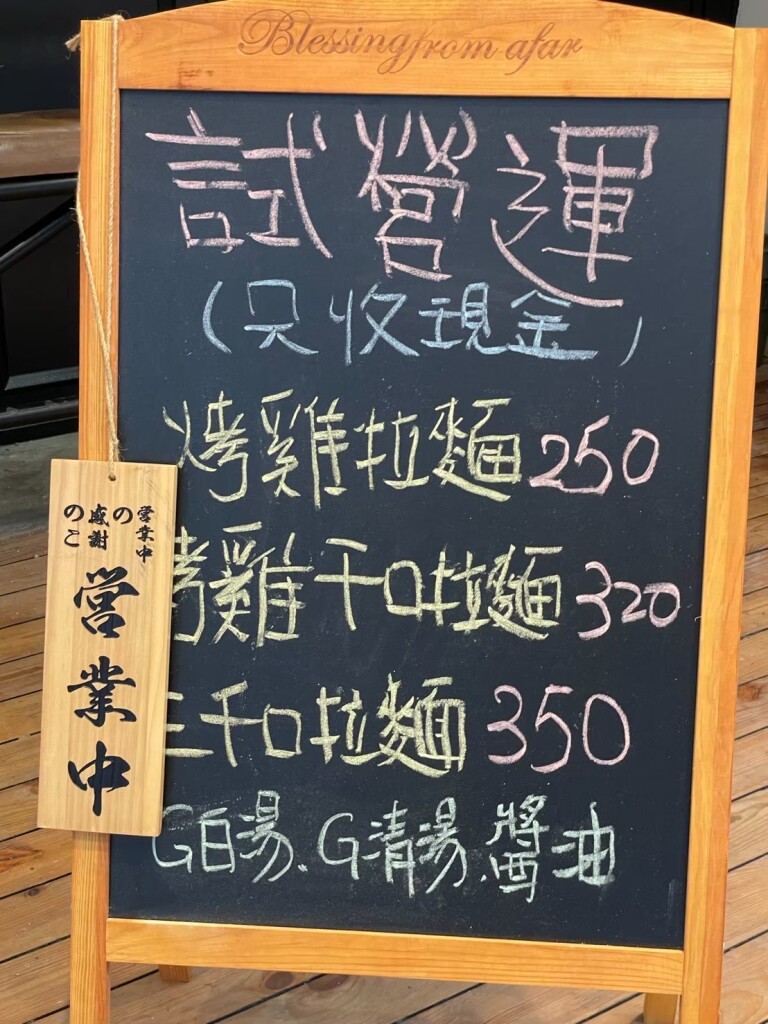 Blessing from afar
試營運
(只收現金)
烤雞拉麵 250
烤雞干口拉麵 320
三干口拉麵 350
G白湯.G清湯.醬油
営業中
の
感謝
のこ
営業中